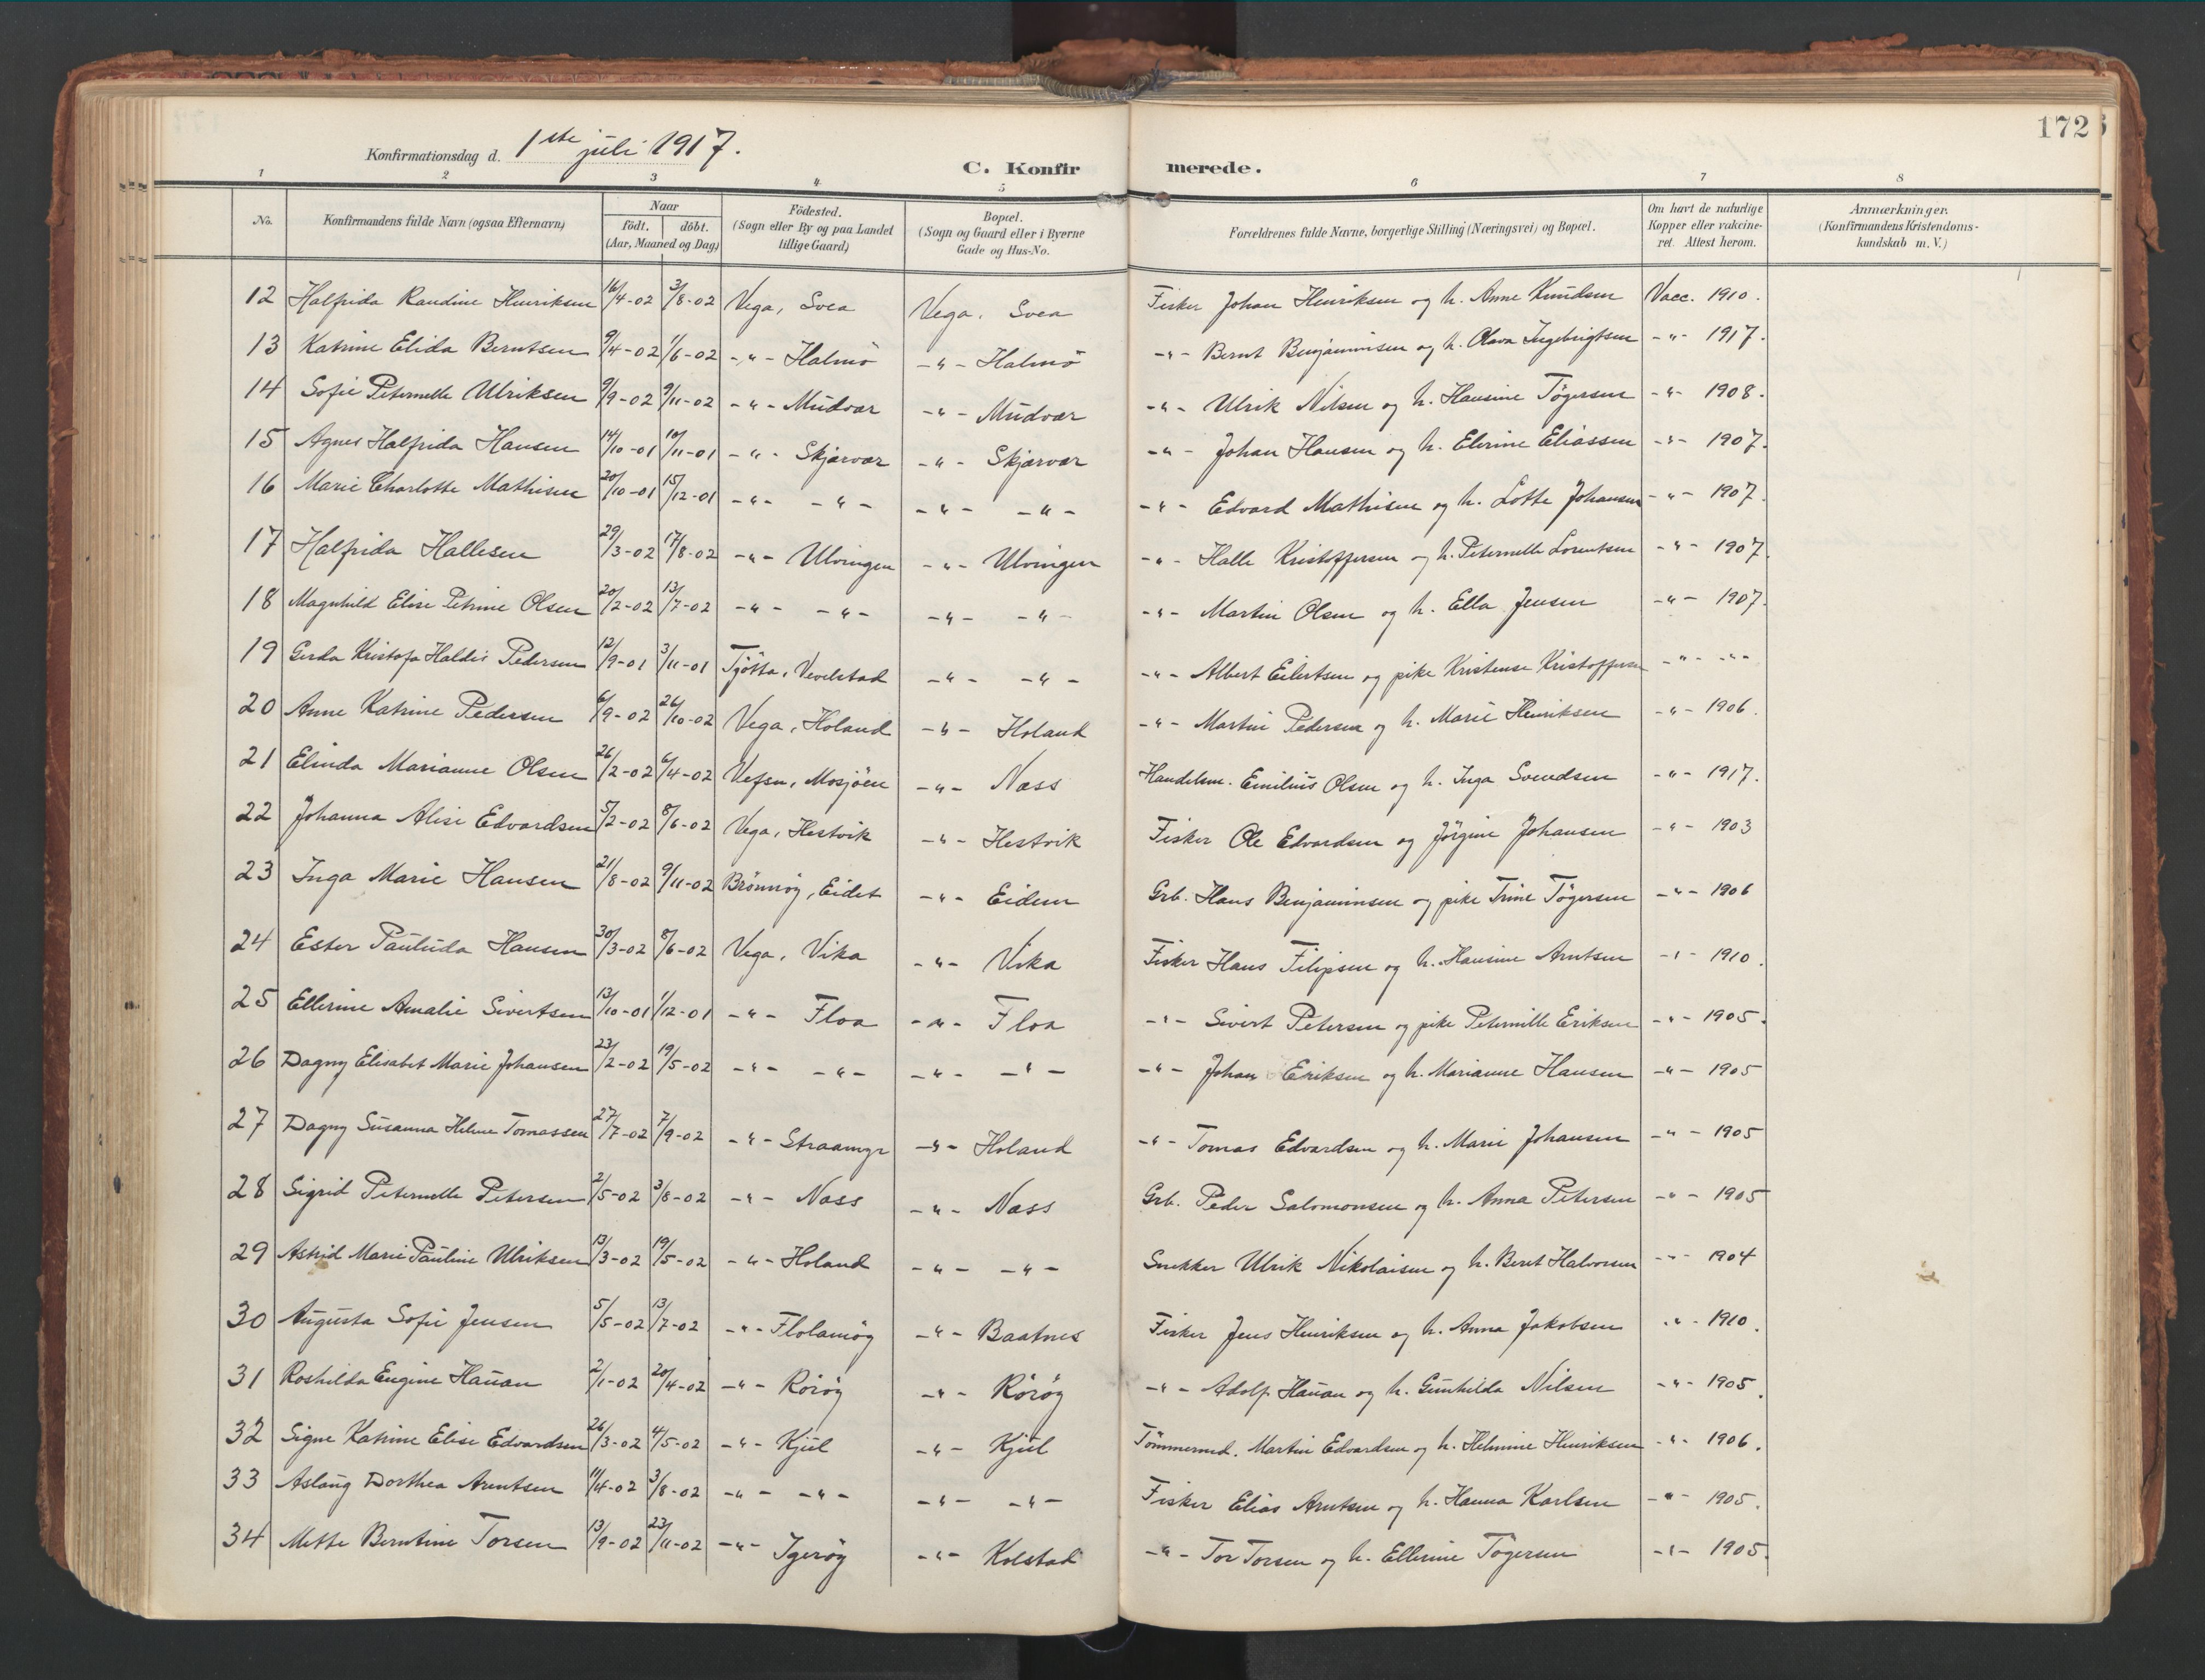 172
Konfirmationsdag d. 1ste juli 1917.
C. Konfirmerede.
1 2 3 4 5 6 7 8
No. Konfirmandens fulde Navn (ogsaa Efternavn) Naar födt. döbt. (Aar, Maaned og Dag) Födested. (Sogn eller By og paa Landet tillige Gaard) Bopæl. (Sogn og Gaard eller i Byerne Gade og Hus-No. Forældrenes fulde Navne, borgerlige Stilling (Næringsvei) og Bopæl. Om havt de naturlige Kopper eller vakcineret. Attest herom. Anmærkninger. (Konfirmandens Kristendomskundskab m. V.)
12 Halfrida Randine Henriksen 16/4-02 3/8-02 Vega, Svea Vega, Svea Fisker Johan Henriksen og h. Anne Knudsen Vacc. 1910.
13 Katrine Elida Berntsen 9/4-02 1/6-02 -"- Halmö -"- Halmö -"- Bernt Benjaminsen og h. Olava Ingebrigtsen -"- 1917.
14 Sofie Peternelle Ulriksen 9/9-02 9/11-02 -"- Mudvær -"- Mudvær -"- Ulrik Nilsen og h. Hansine Tögersen -"- 1908.
15 Agnes Halfrida Hansen 14/10-01 10/11-01 -"- Skjærvær -"- Skjærvær -"- Johan Hansen og h. Elerine Eliassen -"- 1907.
16 Marie Charlotte Mathisen 20/10-01 15/12-01 -"- -"- -"- -"- -"- Edvard Mathisen og h. Lotte Johansen -"- 1907.
17 Halfrida Hallesen 29/3-02 17/8-02 -"- Ulvingen -"- Ulvingen -"- Halle Kristoffersen og h. Peternelle Lorentsen -"- 1907.
18 Magnhild Elise Petrine Olsen 20/2-02 13/7-02 -"- -"- -"- -"- -"- Martin Olsen og h. Ella Jensen -"- 1907.
19 Gerda Kristofa Haldis Pedersen 12/9-01 3/11-01 Tjötta, Vevelstad -"- -"- -"- Albert Eilertsen og pike Kristense Kristoffersen -"- -"-
20 Anne Katrine Pedersen 6/9-02 26/10-02 Vega, Holand -"- Holand -"- Martin Pedersen og h. Marie Henriksen -"- 1906.
21 Elinda Marianne Olsen 26/2-02 6/4-02 Vefsn, Mosjöen -"- Næss Handelsm. Emilius Olsen og h. Inga Svendsen -"- 1917.
22 Johanna Alise Edvardsen 5/2-02 8/6-02 Vega, Hestvik -"- Hestvik Fisker Ole Edvardsen og Jörgine Johansen -"- 1903
23 Inga Marie Hansen 21/8-02 9/11-02 Brönnöy, Eidet -"- Eidem Grb. Hans Benjaminsen og pike Trine Tögersen -"- 1906
24 Ester Paulida Hansen 30/3-02 8/6-02 Vega, Vika -"- Vika Fisker Hans Filipsen og h. Hansine Arntsen -"- 1910.
25 Ellerine Amalie Sivertsen 13/10-01 1/12-01 -"- Floa -"- Floa -"- Sivert Petersen og pike Peternille Eriksen -"- 1905.
26 Dagny Elisabet Marie Johansen 23/2-02 19/5-02 -"- -"- -"- -"- -"- Johan Eriksen og h. Marianne Hansen -"- 1905
27 Dagny Susanna Helene Tomassen 27/7-02 7/9-02 -"- Straamyr -"- Holand -"- Tomas Edvardsen og h. Marie Johansen -"- 1905
28 Sigrid Peternelle Petersen 2/5-02 3/8-02 -"- Næss -"- Næss Grb. Peder Salomonsen og h. Anna Petersen -"- 1905
29 Astrid Marie Pauline Ulriksen 13/3-02 19/5-02 -"- Holand -"- -"- Snekker Ulrik Nikolaisen og h. Beret Halvorsen -"- 1904
30 Augusta Sofie Jensen 5/5-02 13/7-02 -"- -"- Baatnes Fisker Jens Henriksen og h. Anna Jakobsen -"- 1910.
31 Roshilda Eugine Hauan 2/1-02 20/4-02 -"- Röröy -"- Röröy -"- Adolf Hauan og h. Gunhilda Nilsen -"- 1905.
32 Signe Katrine Elise Edvardsen 26/3-02 4/5-02 -"- Kjül -"- Kjül Tömmermd. Martin Edvardsen og h. Helmine Henriksen -"- 1906.
33 Aslaug Dorthea Arentsen 11/4-02 3/8-02 -"- -"- -"- -"- Fisker Elias Arntsen og h. Hanna Karlsen -"- 1905.
34 Mette Berntine Torsen 13/9-02 23/11-02 -"- Igeröy -"- Kolstad -"- Tor Torsen og h. Ellerine Tögersen -"- 1905.